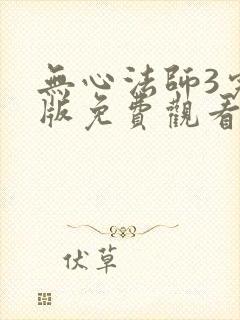 無心法師3
版免費觀看
伏草